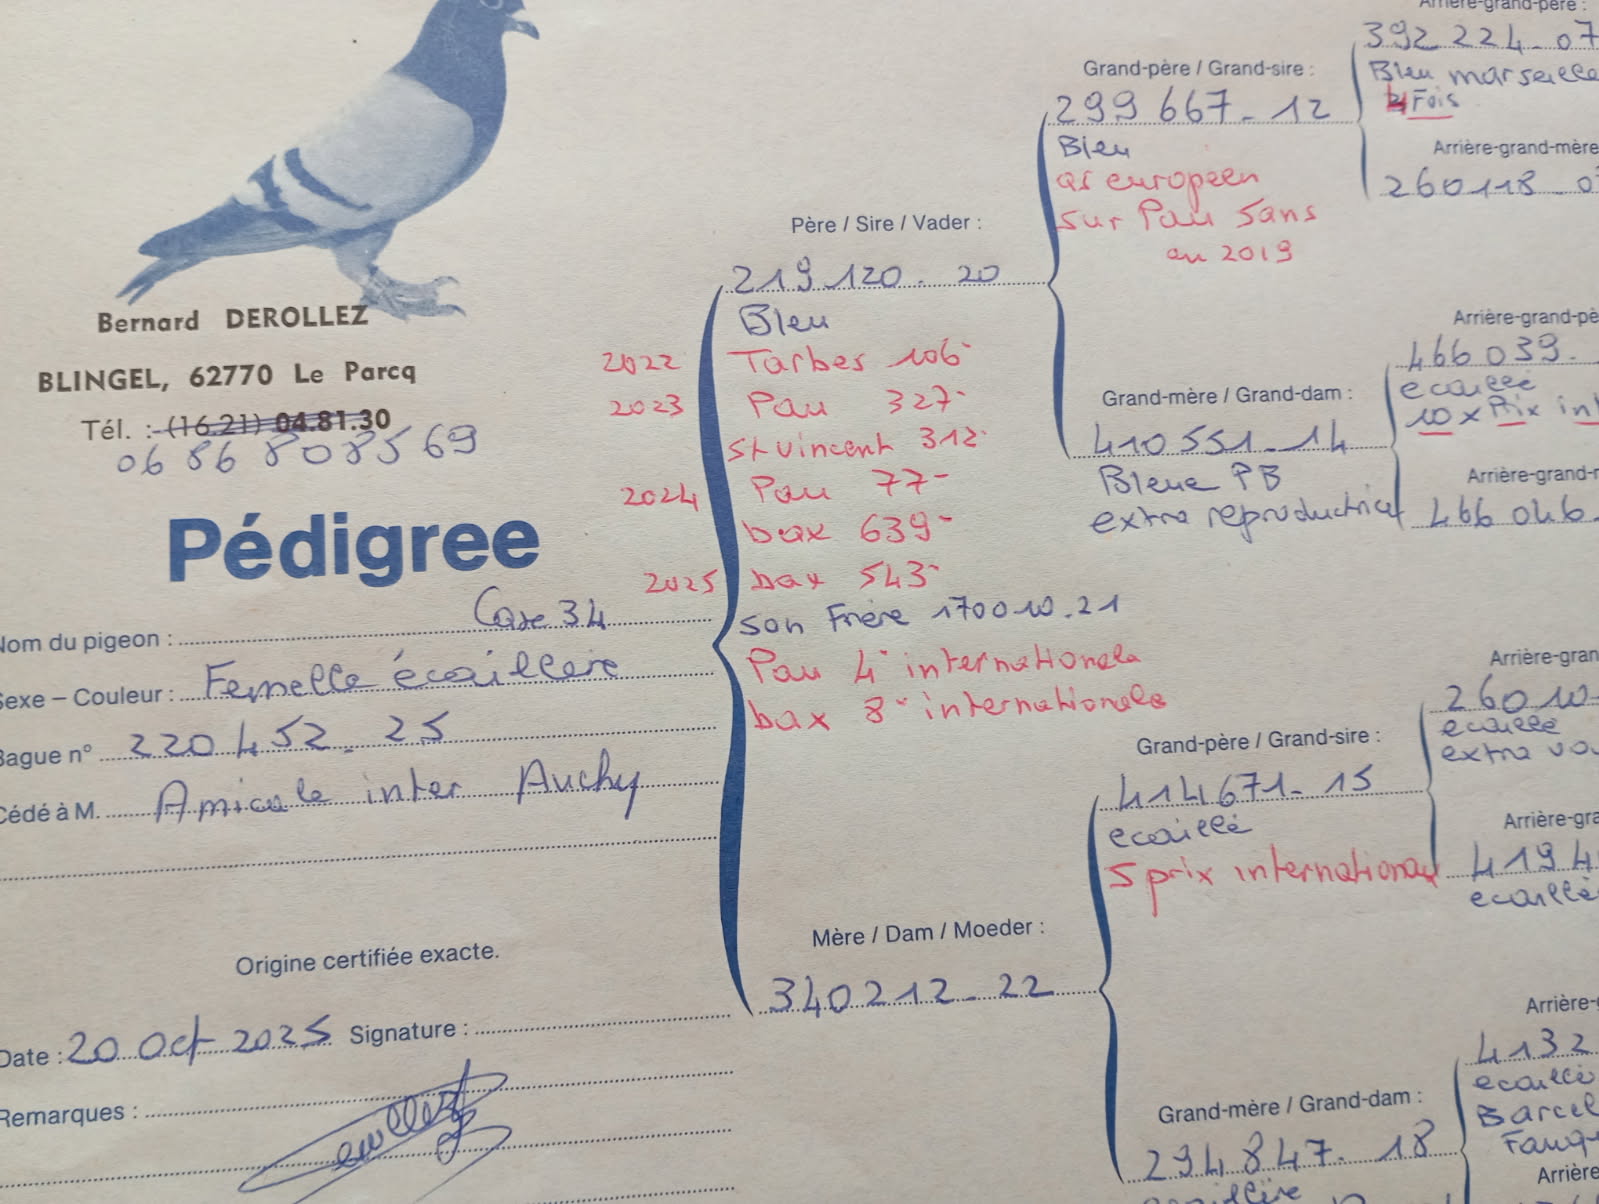 Bernard DEROLLEZ
BLINGEL, 62770 Le Parcq
Tél. : (16.21) 04.81.30
06 86 80 85 69
Pédigree
Nom du pigeon : Case 34
Sexe – Couleur : Femelle écaillée
Bague n° 220452. 25
Cédé à M. Amicale inter Auchy
Origine certifiée exacte.
Date : 20 Oct 2025 Signature :
Remarques :
Père / Sire / Vader :
219 120 . 20
Bleu
2022 Tarbes 106°
2023 Pau 327°
St Vincent 312°
2024 Pau 77-
bax 639-
2025 bax 543-
son Frère 170010.21
Pau 4° internationale
bax 8° internationale
Mère / Dam / Moeder :
340212 - 22
Grand-père / Grand-sire :
299 667 - 12
Bleu
as européen
sur Pau 5ans
en 2019
Grand-mère / Grand-dam :
410551 - 14
Bleue PB
extra reproductrice
Grand-père / Grand-sire :
414671 - 15
écaillé
5 prix international
Grand-mère / Grand-dam :
294847. 18
Arrière-grand-père :
392 224 - 07
Bleu marseille
4 Fois
Arrière-grand-mère
260118 - 0
Arrière-grand-pè
466 039.
écaillé
10 x Prix int
Arrière-grand-
466 046.
Arrière-gran
26010-
écaillé
extra vo
Arrière-gra
4194
écaillé
Arrière-
4132
écaillé
Barcel
Arrière